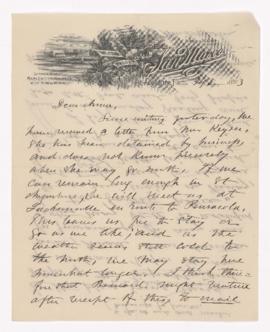 San Marco
Dear Anna,
Since writing yesterday, we
have received a letter from Mrs Keyser,
She has been detained by
and does not know precisely
when she may go north. If we
can remain long enough in St
Augustine she will meet us at
Jacksonville en route to Pensacola.
This leaves us free to stay or
go as we like, and as the
weather seems still cold to
the North, we may stay here
somewhat longer. I think there-
fore that Bernard might venture
after receipt of this, to mail